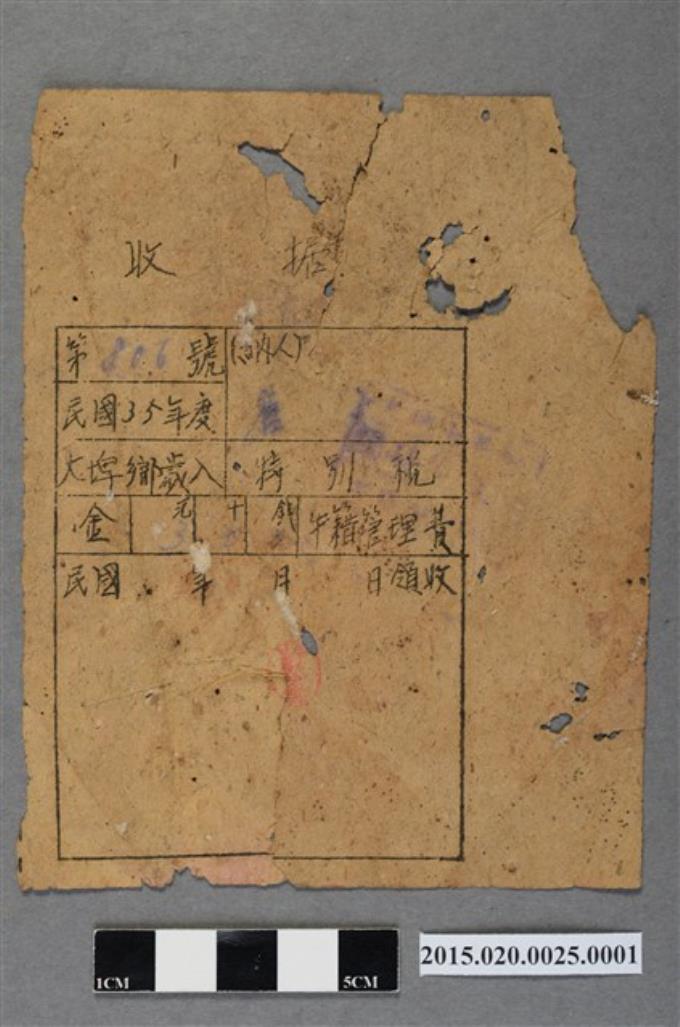 收據
第 806 號
(納人)
民國35年度
大埤鄉歲入
特別稅
金 元 十 錢
牛籍管理費
民國 年 月 日領收
1CM 5CM
2015.020.0025.0001